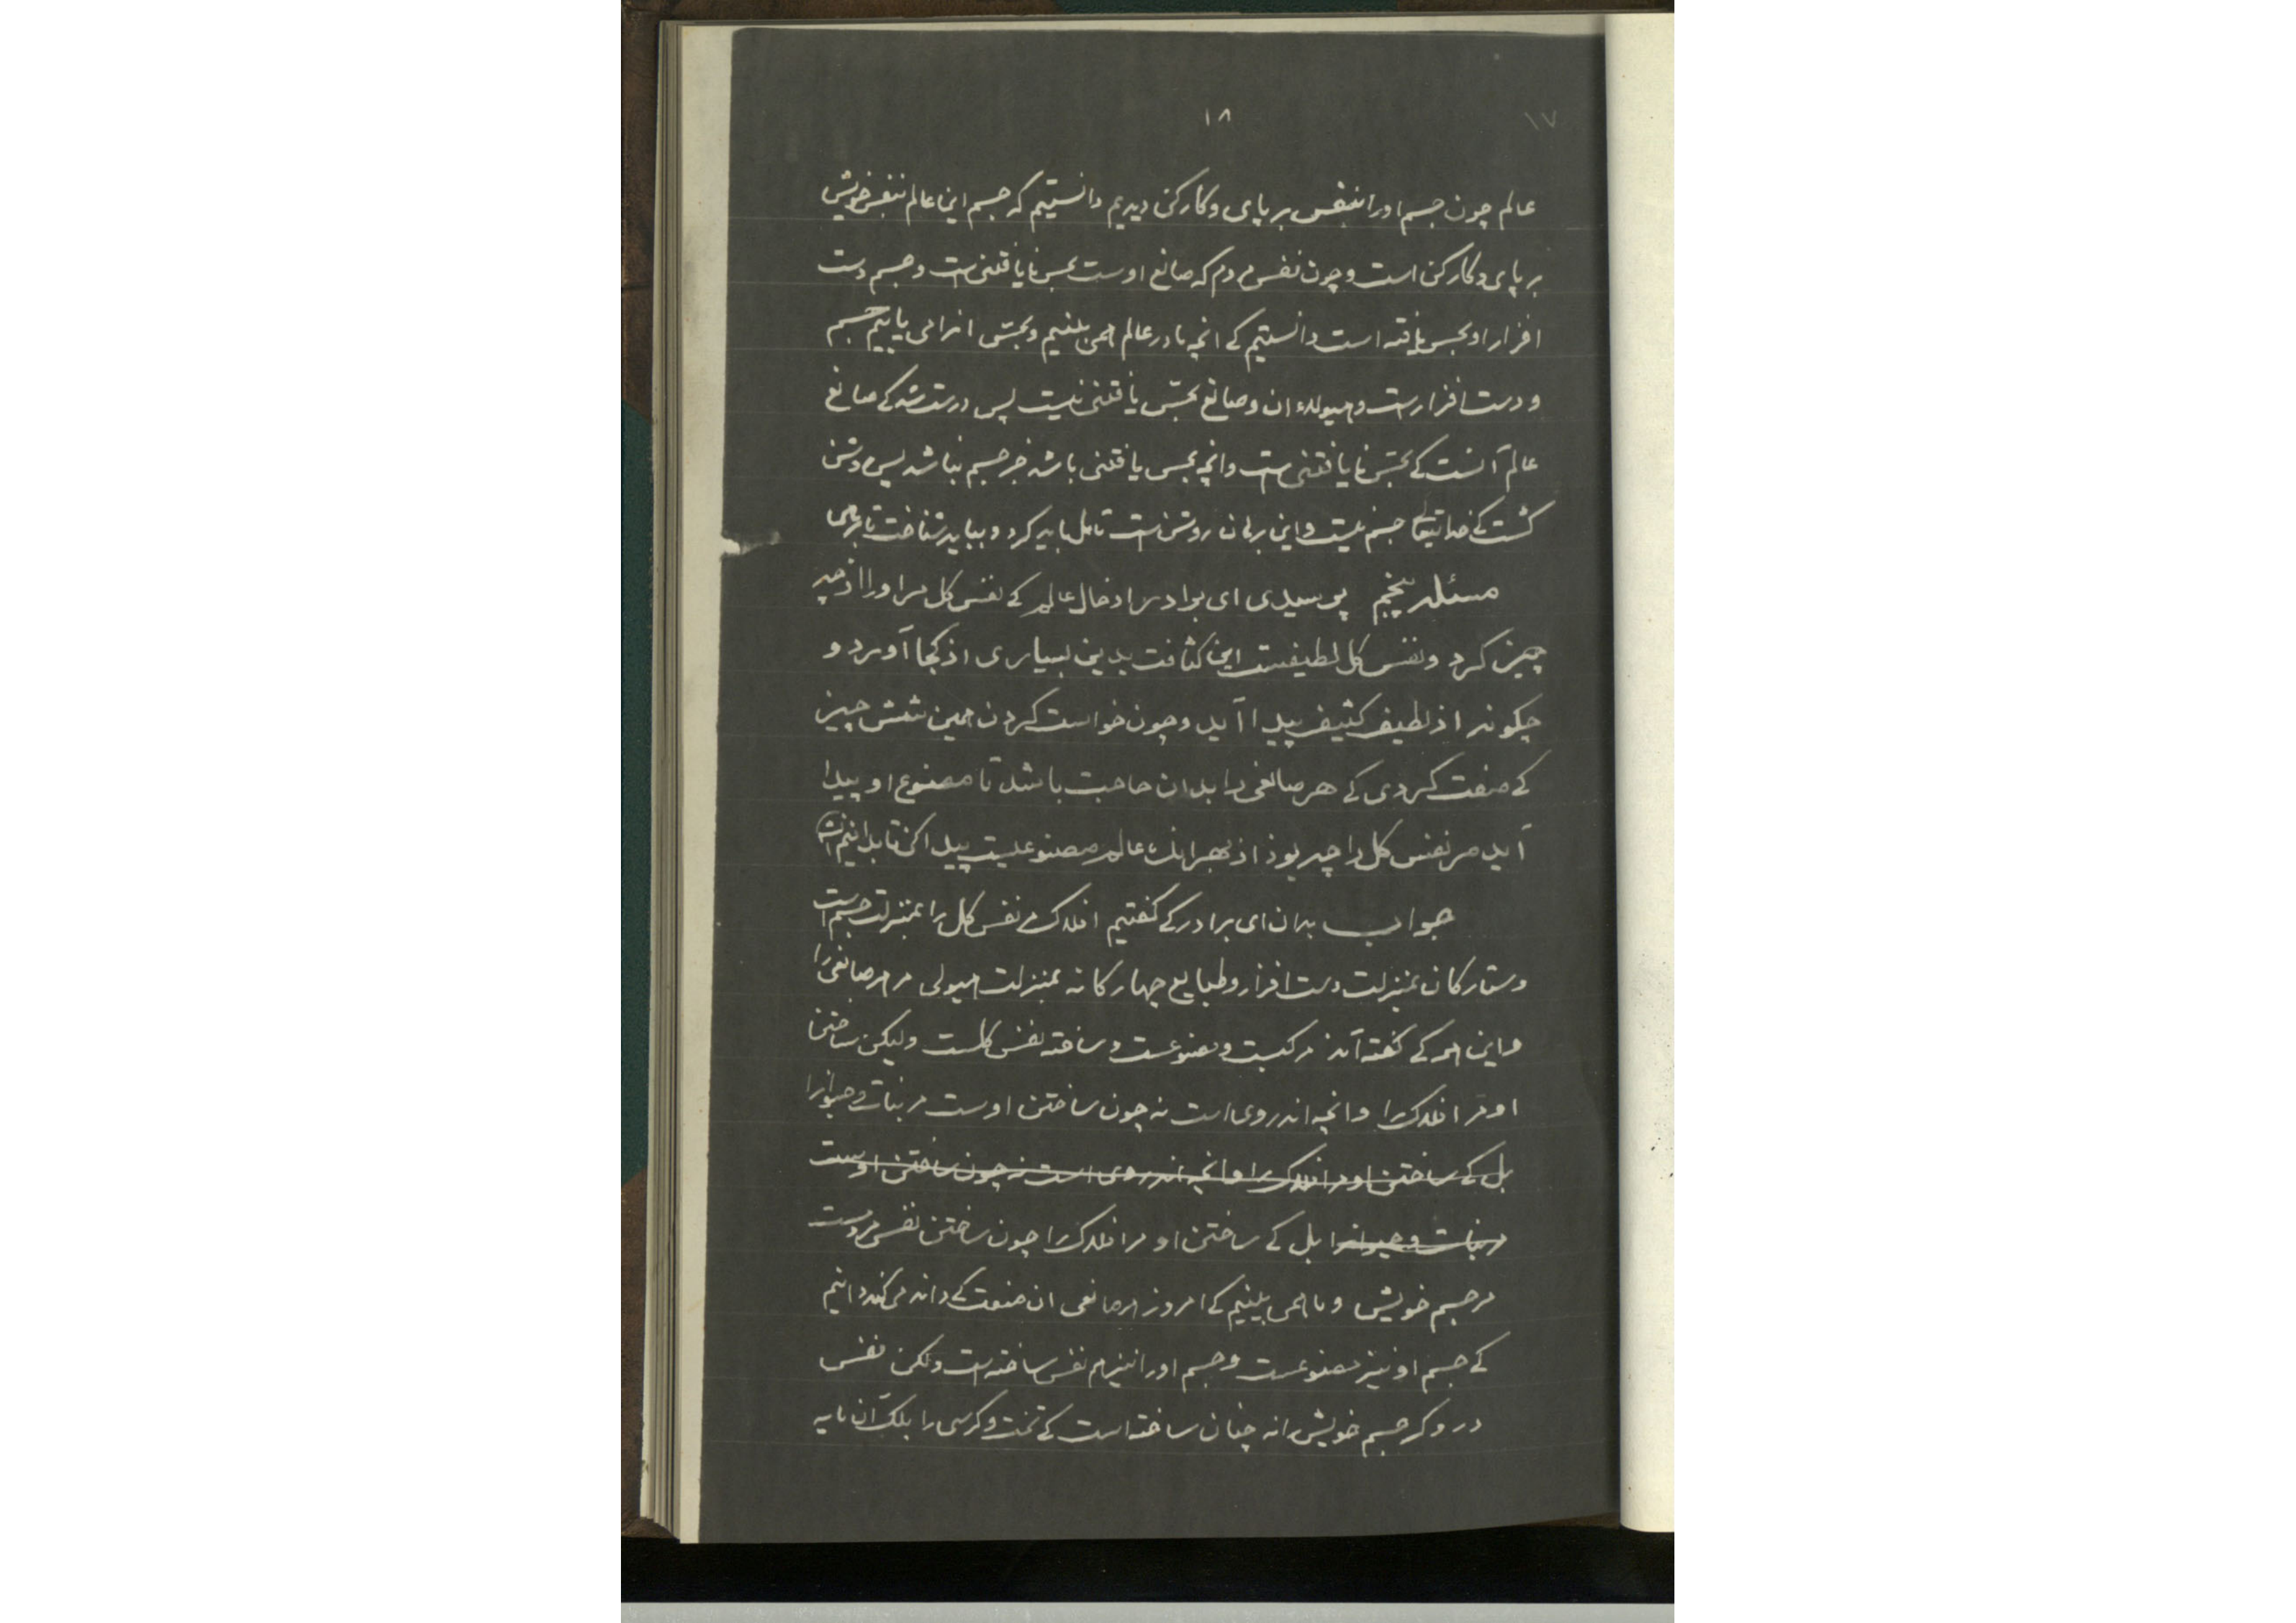 ۱۸
۱۷
عالم چون جسم او را بنفس بر پای و کارکن دیدیم دانستیم که جسم این عالم بنفس خویش
بر پای و کارکن است و چون نفس مردم که صانع اوست بحس نایافتنی است و جسم دست
افزار او بحس یافته است دانستیم کے انچه ما در عالم همی بینیم و بحسّ انرا می یابیم جسم
و دست افزارست و هیولاء ان و صانع بحسّ یافتنی نیست پس درست شد کے صانع
عالم آنست کے بحسّ نایافتنی است وانچه بحس یافتنی باشد جز جسم نباشد پس روشن
گشت کے خداتیعالے جسم نیست و این برهان روشن است تامل باید کرد و بباید شناخت تا برهی
مسئله پنجم پرسیدی ای برادر از حال عالم کے نفس کل مر او را از چه
چیز کرد و نفس کل لطیفست این کثافت بدین بسیاری از کجا آورد و
چگونه از لطیف کثیف پیدا آید و چون خواست کردن همین شش چیز
کے صفت کردی کے هر صانعی را بدان حاجت باشد تا مصنوع او پیدا
آید مر نفس کل را چه بوذ از بهر انک عالم مصنوعیست پیدا کن تا بدانیم
جواب بدان ای برادر کے گفتیم افلاک مر نفس کل را بمنزلت جسم است
و ستارکان بمنزلت دست افزار و طبایع چهارکانه بمنزلت هیولی مر هر صانعی را
و این همه کے گفته آمذ مرکبست و مصنوعست و ساخته نفس کلست ولیکن ساختن
او مر افلاک را وانچه اندروی است نه چون ساختن اوست مر نبات و حیوانرا
بل کے ساختن او مر افلاک را وانچه اندروی است نه چون ساختن اوست
مر نبات و حیوانرا بل کے ساختن او مر افلاک را چون ساختن نفس مردمست
مر جسم خویش و ما همی بینیم کے امروز هر صانعی ان صنعت کے داند می کند دانیم
کے جسم او نیز مصنوعست و جسم او را نیز هم نفس ساخته است ولکن نفس
درودکر جسم خویش را نه چنان ساخته است کے تخت و کرسی را بلک آن مایه